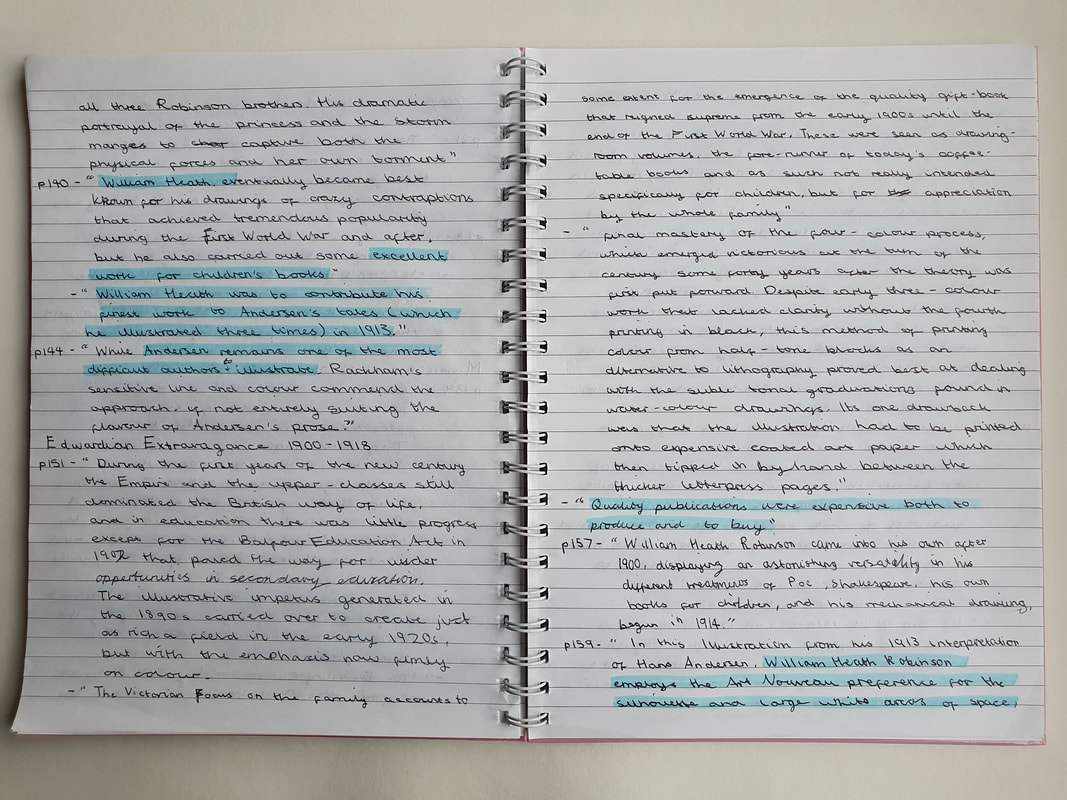 all three Robinson brothers. His dramatic
portrayal of the princess and the storm
manges to capture both the
physical forces and her own torment"
p140 - " William Heath, eventually became best
known for his drawings of crazy contraptions
that achieved tremendous popularity
during the First World War and after,
but he also carried out some excellent
work for children's books"
- " William Heath was to contribute his
finest work to Andersen's tales (which
he illustrated three times) in 1913."
p144 - " While Andersen remains one of the most
difficult authors to illustrate, Rackham's
sensitive line and colour commend the
approach, if not entirely suiting the
flavour of Andersen's prose?"
Edwardian Extravagance 1900-1918
p151 - " During the first years of the new century
the Empire and the upper-classes still
dominated the British way of life,
and in education there was little progress
except for the Balfour Education Act in
1902 that paved the way for wider
opportunities in secondary education.
The illustrative impetus generated in
the 1890s carried over to create just
as rich a field in the early 1920s,
but with the emphasis now firmly
on colour.
- " The Victorian Focus on the family accounts to
some extent for the emergence of the quality gift-book
that reigned supreme from the early 1900s until the
end of the First World War. These were seen as drawing-
room volumes, the fore-runner of today's coffee-
table books and as such not really intended
specifically for children, but for the appreciation
by the whole family"
- " final mastery of the four-colour process,
which emerged victorious at the turn of the
century some forty years after the theory was
first put forward. Despite early three-colour
work that lacked clarity without the fourth
printing in black, this method of printing
colour from half-tone blocks as an
alternative to lithography proved best at dealing
with the subtle tonal graduations found in
water-colour drawings. Its one drawback
was that the illustration had to be printed
onto expensive coated art paper which
then tipped in by hand between the
thicker letterpress pages."
- " Quality publications were expensive both to
produce and to buy"
p157 - " William Heath Robinson came into his own after
1900, displaying an astonishing versatility in his
different treatments of Poe, Shakespeare, his own
books for children, and his mechanical drawing,
begun in 1914."
p159 - " In this illustration from his 1913 interpretation
of Hans Andersen, William Heath Robinson
employs the Art Nouveau preference for the
silhouette and large white areas of space,